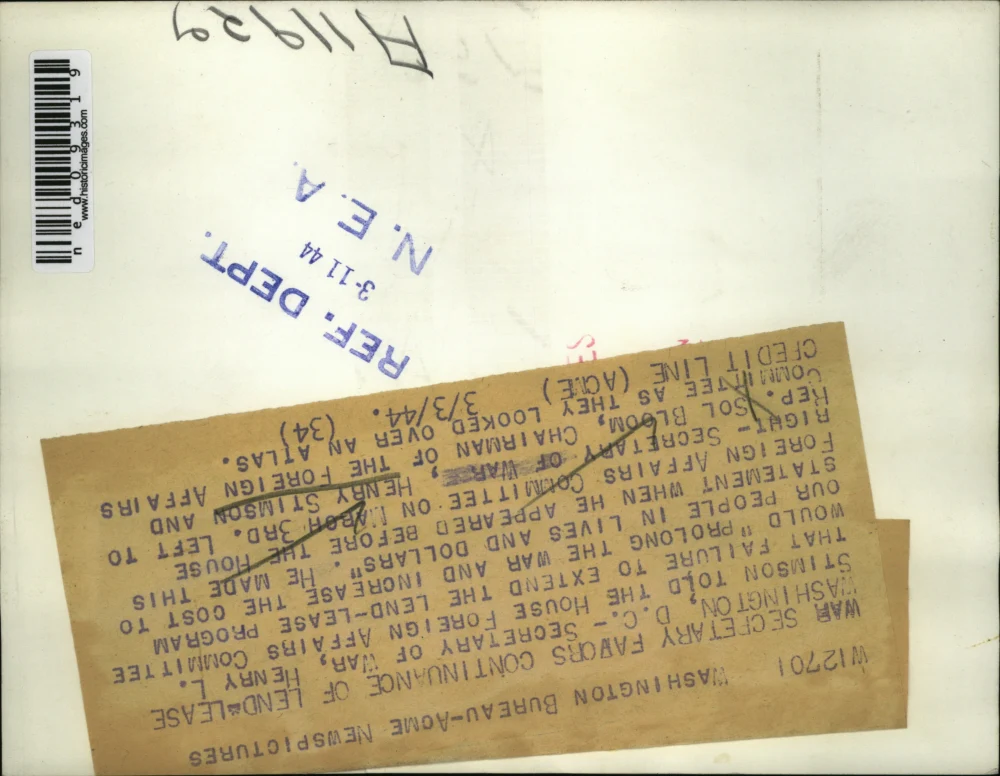 W12701 WASHINGTON BUREAU-ACME NEWSPICTURES
WAR SECRETARY FAVORS CONTINUANCE OF LEND-LEASE
WASHINGTON, D.C.- SECRETARY OF WAR, HENRY L.
STIMSON TOLD THE HOUSE FOREIGN AFFAIRS COMMITTEE
THAT FAILURE TO EXTEND THE LEND-LEASE PROGRAM
WOULD "PROLONG THE WAR AND INCREASE THE COST TO
OUR PEOPLE IN LIVES AND DOLLARS". HE MADE THIS
STATEMENT WHEN HE APPEARED BEFORE THE HOUSE
FOREIGN AFFAIRS COMMITTEE ON MARCH 3RD. LEFT TO
RIGHT- SECRETARY OF WAR, HENRY STIMSON AND
REP. SOL BLOOM, CHAIRMAN OF THE FOREIGN AFFAIRS
COMMITTEE AS THEY LOOKED OVER AN ATLAS.
CREDIT LINE (ACME) 3/3/44. (34)
REF. DEPT.
3-11 44
N. E. A.
A11929
ned09319
www.historicimages.com